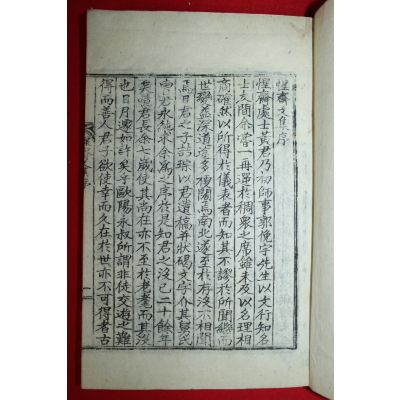 惺齋文集序
惺齋處士黃君乃初師事郭俛宇先生以文行知名
士友間余嘗一再遇於稠衆之席雖未及以名理相
商確然以所得於儀表者而知其不謬於所聞繼而
世變益深道途多梗闊焉南北遂至於存沒不相聞
焉日君之子以君遺稿并狀碣文字介其舅氏
而君永純求余爲一序於是知君之沒已二十餘年
矣噫君長余七歲使其尚在亦不至於耄耋而其沒
也日月遽如許矣乎歐陽永叔所謂非徒交遊之難
得而善人君子欲使幸而久在於世亦不可得者古